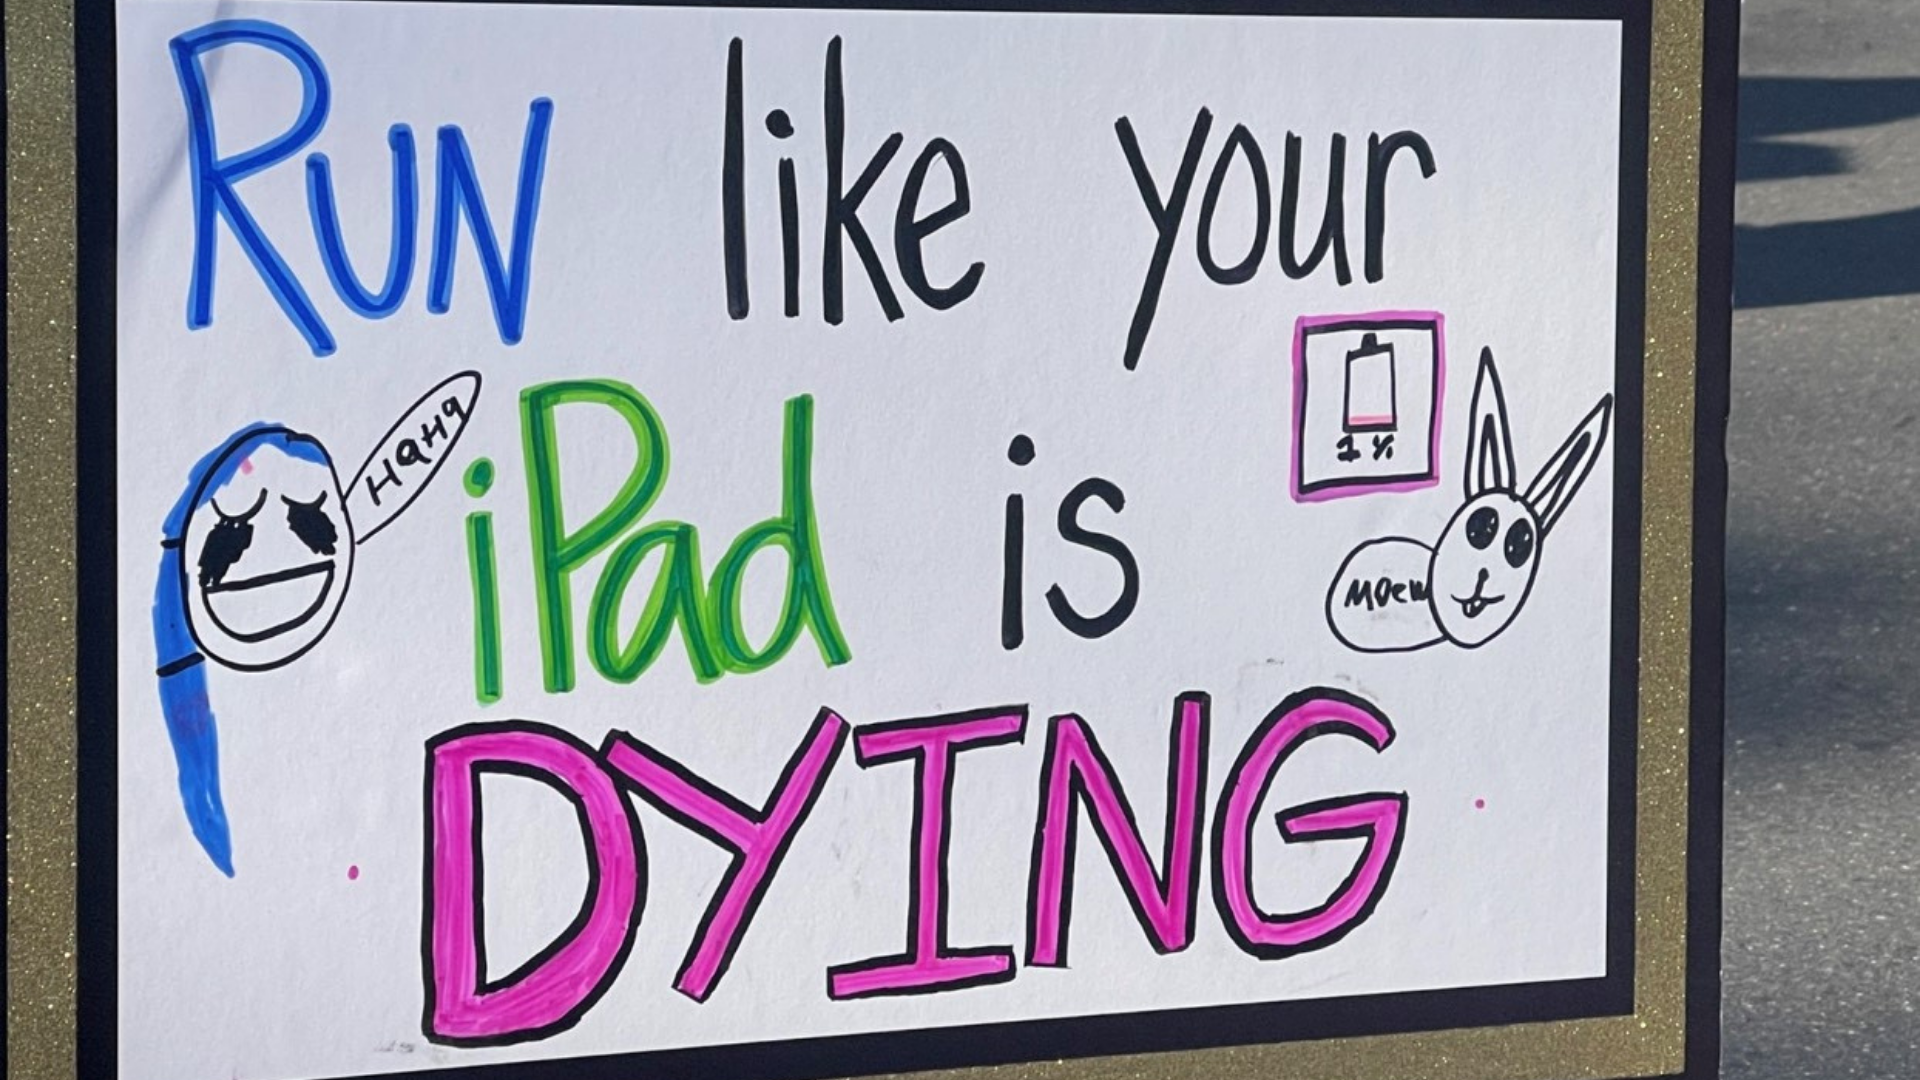 RUN like your
1%
HaHa
iPad is
Moew
DYING